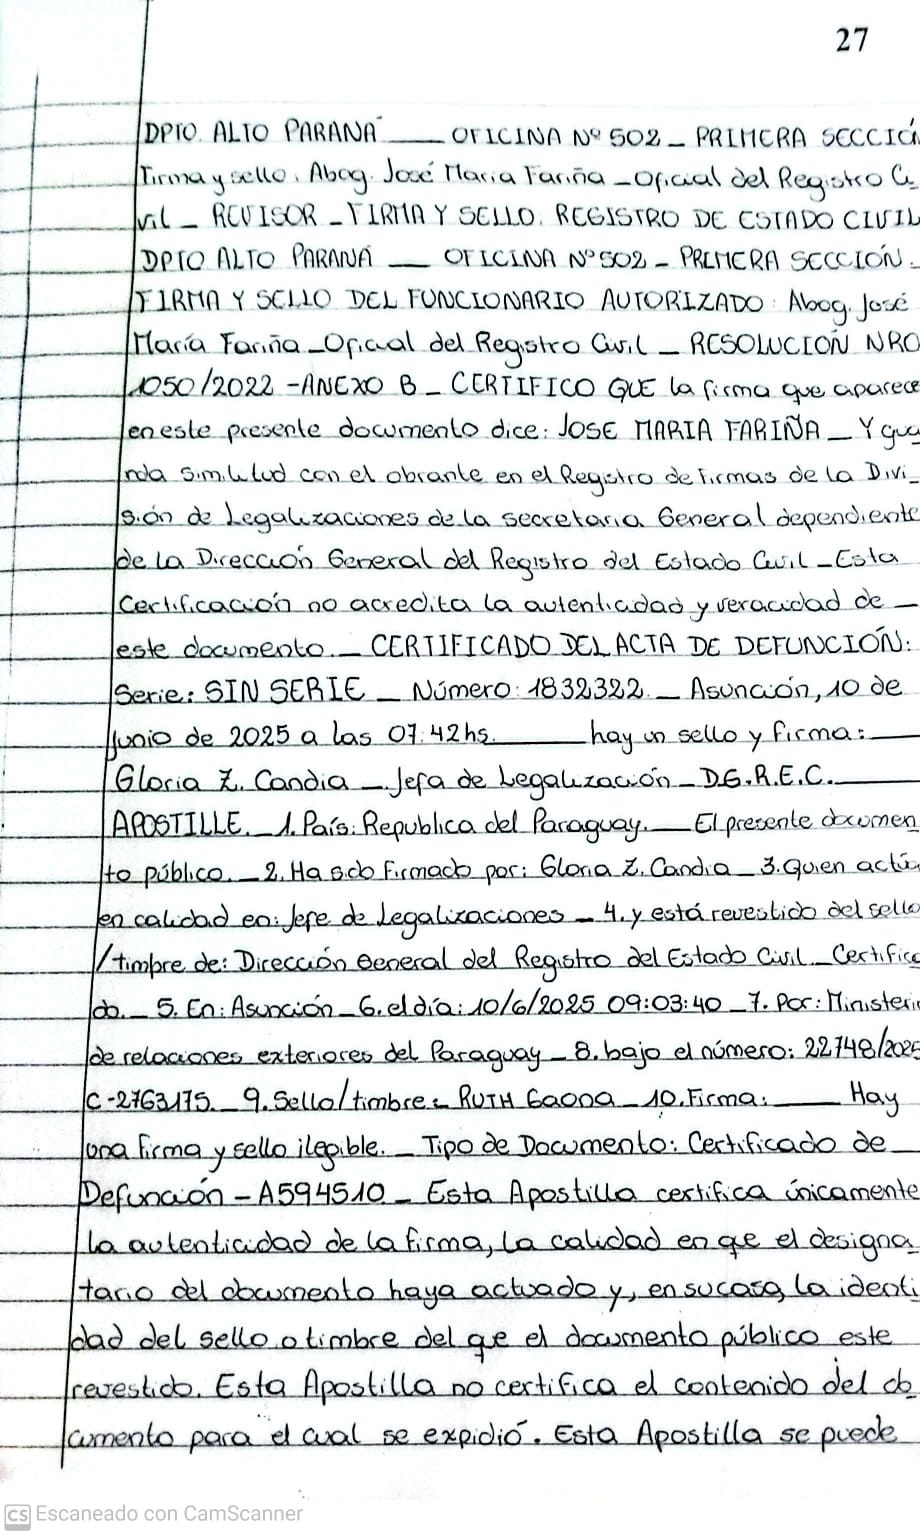 27
DPTO. ALTO PARANÁ ___ OFICINA Nº 502 _ PRIMERA SECCIÓ
Firma y sello. Abog. José Maria Fariña _ Oficial del Registro Ci_
vil _ REVISOR _ FIRMA Y SELLO. REGISTRO DE ESTADO CIVIL
DPTO ALTO PARANÁ ___ OFICINA Nº 502 _ PRIMERA SECCIÓN.
FIRMA Y SELLO DEL FUNCIONARIO AUTORIZADO: Abog. José
María Fariña _ Oficial del Registro Civil _ RESOLUCIÓN NRO
1050/2022 - ANEXO B _ CERTIFICO QUE la firma que aparece
en este presente documento dice: JOSE MARIA FARIÑA _ Y gua
rda similitud con el obrante en el Registro de Firmas de la Divi_
sión de Legalizaciones de la secretaria General dependiente
de la Dirección General del Registro del Estado Civil _ Esta
Certificación no acredita la autenticidad y veracidad de _
este documento. _ CERTIFICADO DEL ACTA DE DEFUNCIÓN:
Serie: SIN SERIE _ Número: 1832322. _ Asunción, 10 de
junio de 2025 a las 07:42hs. ___ hay un sello y firma: _
Gloria Z. Candia _ Jefa de Legalización _ D.G.R.E.C. ___
APOSTILLE. _ 1. País: Republica del Paraguay. __ El presente documen
to público. _ 2. Ha sido Firmado por: Gloria Z. Candia _ 3. Quien actúa
en calidad en: Jefe de Legalizaciones _ 4. y está revestido del sello
/timbre de: Dirección General del Registro del Estado Civil _ Certifica
do. _ 5. En: Asunción _ 6. el día: 10/6/2025 09:03:40 _ 7. Por: Ministerio
de relaciones exteriores del Paraguay _ 8. bajo el número: 22748/2025
C-2763175. _ 9. Sello/timbre: RUTH Gaona _ 10. Firma: ___ Hay
una firma y sello ilegible. _ Tipo de Documento: Certificado de _
Defunción - A594510 _ Esta Apostilla certifica únicamente
la autenticidad de la firma, la calidad en que el designa_
tario del documento haya actuado y, en su caso, la identi
dad del sello o timbre del que el documento público este
revestido. Esta Apostilla no certifica el contenido del do
cumento para el cual se expidió. Esta Apostilla se puede
CS Escaneado con CamScanner